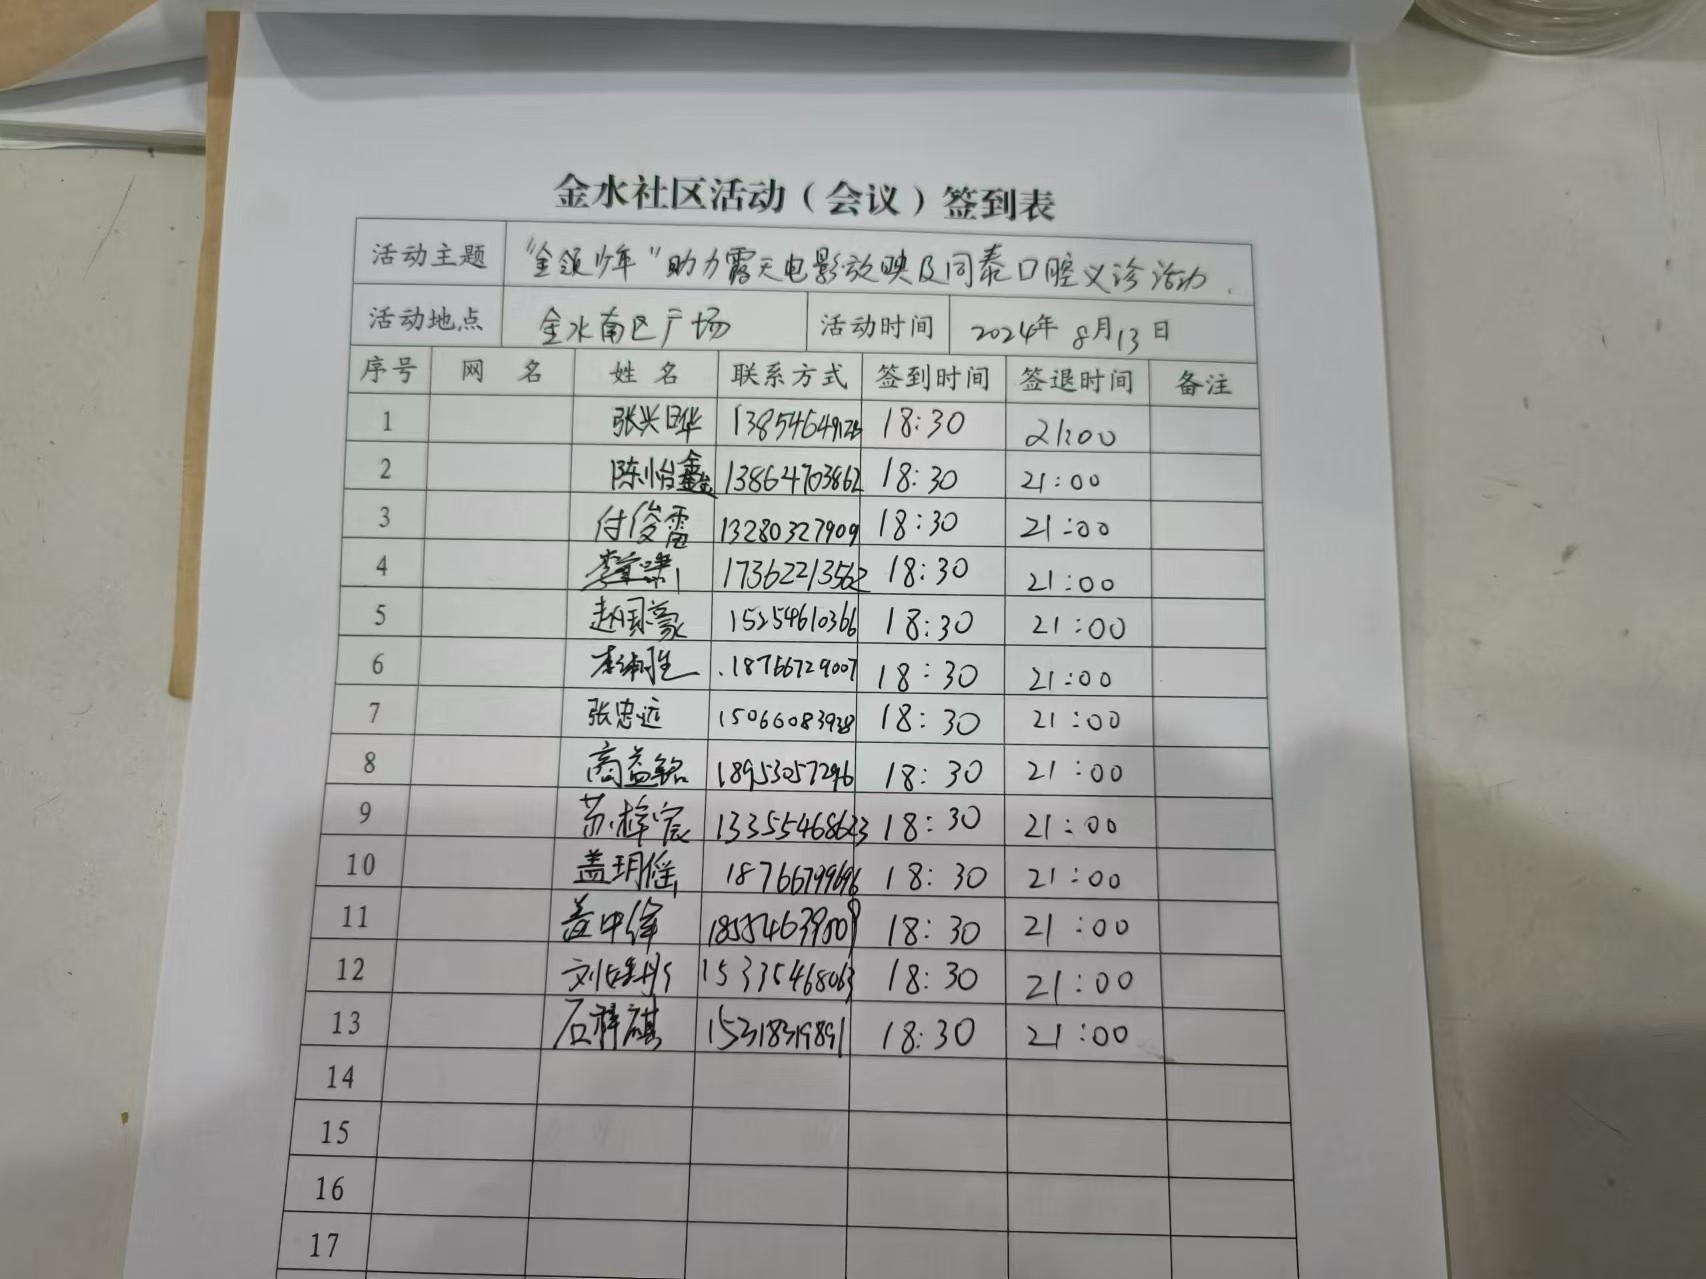 金水社区活动（会议）签到表
活动主题 "金领少年"助力露天电影放映及同泰口腔义诊活动.
活动地点 金水南区广场 活动时间 2024年8月13日
序号 网 名 姓 名 联系方式 签到时间 签退时间 备注
1 18:30 21:00
2 陈怡鑫 13864703862 18:30 21:00
3 付俊雷 13280327909 18:30 21:00
4 17362213562 18:30 21:00
5 赵国豪 15254610366 18:30 21:00
6 18766729007 18:30 21:00
7 张忠远 15066083938 18:30 21:00
8 商益铭 18953057296 18:30 21:00
9 苏梓宸 18:30 21:00
10 盖玥傜 18766799696 18:30 21:00
11 盖中锋 18:30 21:00
12 15335468063 18:30 21:00
13 石梓祺 15318319891 18:30 21:00
14
15
16
17